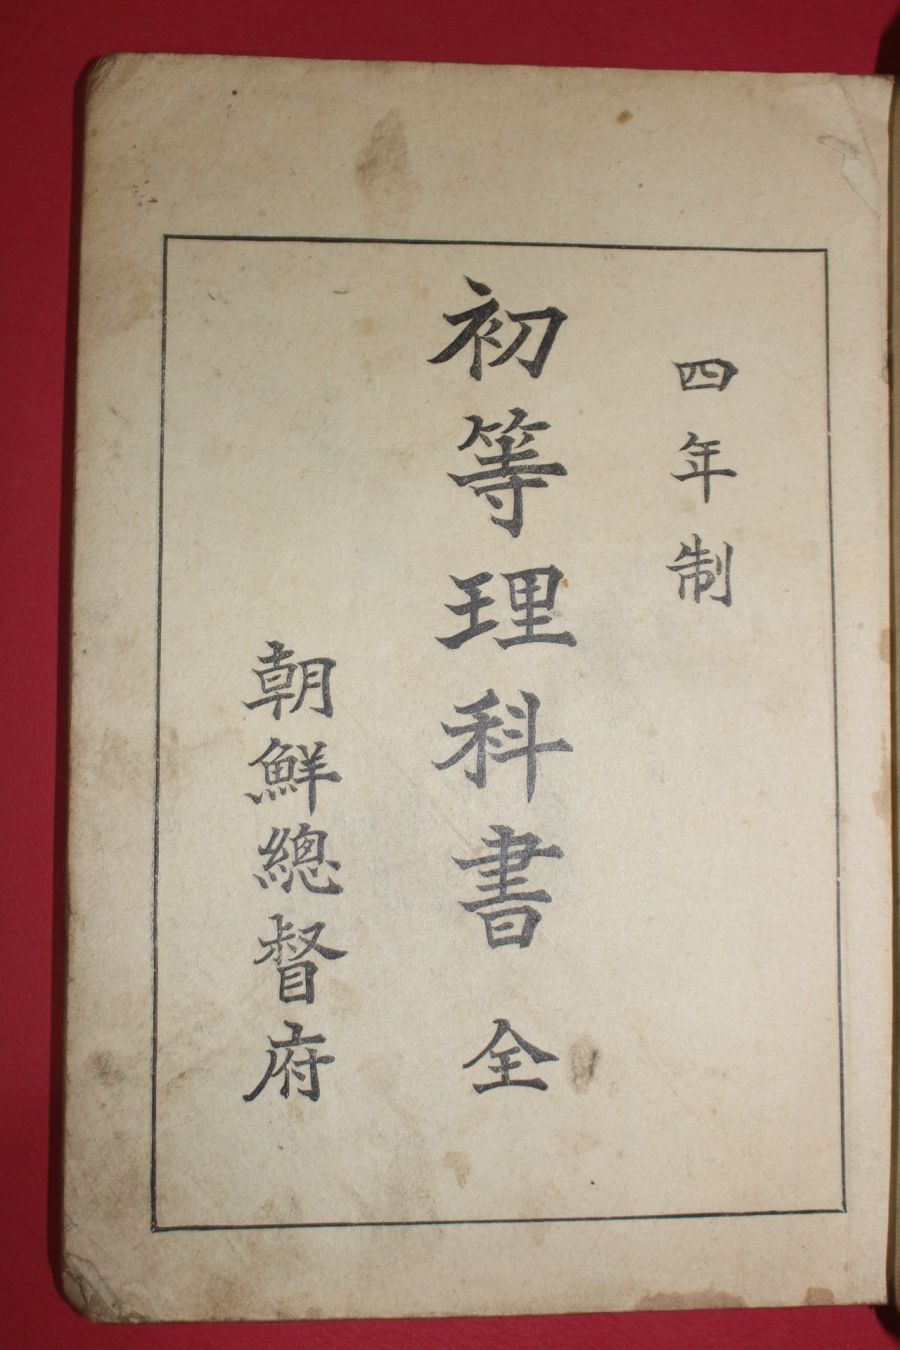 四年制
初等理科書 全
朝鮮總督府